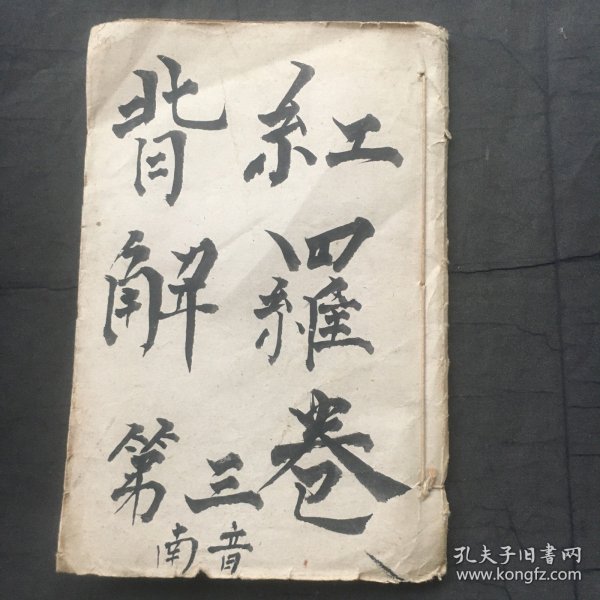 紅羅卷
背解
第三
南音
孔夫子旧書网
www.kongfz.com